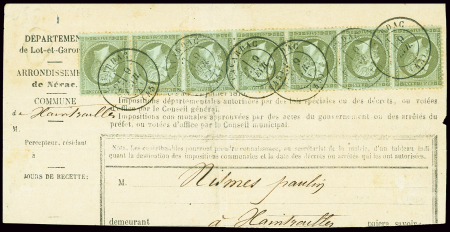 DÉPARTEMENT
de Lot-et-Garon
ARRONDISSEMENT
de Nérac.
COMMUNE
de Xaintrailles
Percepteur, résidant
à
JOURS DE RECETTE:
Impositions départementales autorisées par des lois spéciales ou des décrets, ou votées
d'office par le Conseil général.
Impositions communales approuvées par des actes du gouvernement ou des arrêtés du
préfet, ou votées d'office par le Conseil municipal.
Nota. Les contribuables pourront prendre connaissance, au secrétariat de la mairie, d'un tableau indi
quant la destination des impositions communales et la date des décrets ou arrêtés qui les ont autorisées.
M. Nismes paulin
demeurant à Xaintrailles